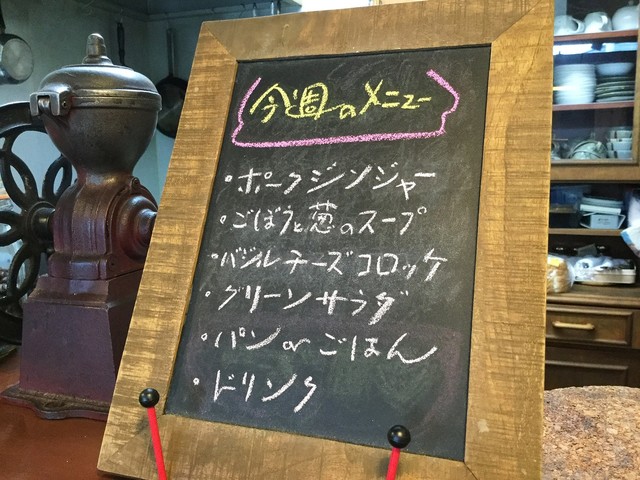 今週のメニュー
・ポークジンジャー
・ごぼうと葱のスープ
・バジルチーズコロッケ
・グリーンサラダ
・パン or ごはん
・ドリンク